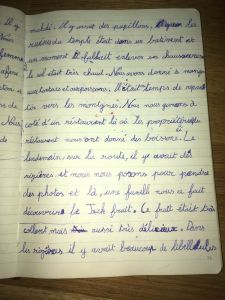 mahdi. Il y avait des papillons,
ruines du temple était dans un batiment et
un moment il fallait enlever ses chaussures
le sol était très chaud. Nous avons donné à manger
aux tortues et aux poissons. Il était temps de repartir
vers les montagnes. Nous nous genons à
coté d'un restaurant là où les propriétaires du
restaurant nous ont donné des boissons. Le
lendemain, sur la route, il y avait des
rizières, et nous nous posons pour prendre
des photos et là, une famille nous a fait
découvrire le Jack fruit. Ce fruit était très
collant mais aussi très délicieux. Dans
les rizières il y avait beaucoup de libellules